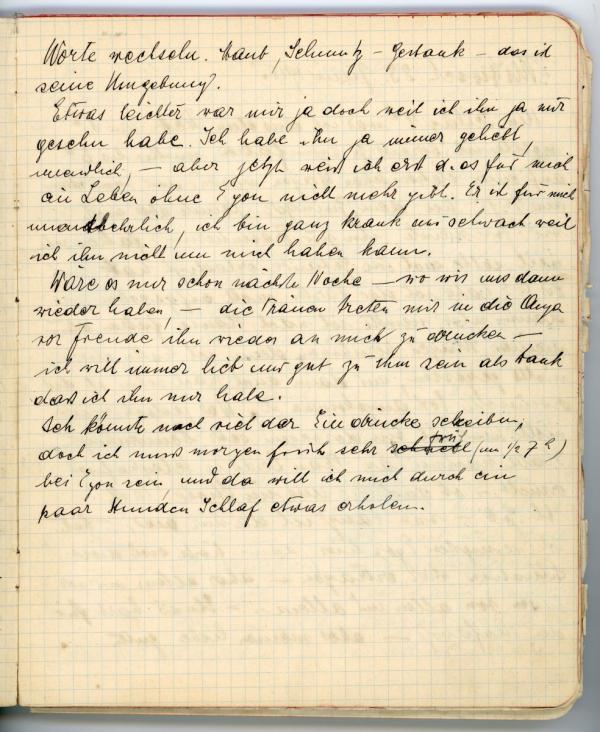 Worte wechseln. Staub, Schmutz – Gestank – das ist
seine Umgebung.
Etwas leichter war mir ja doch weil ich ihn ja nur
gesehn habe. Ich habe ihn ja immer geliebt,
unendlich, – aber jetzt weiß ich erst d. es für mich
ein Leben ohne Egon nicht mehr gibt. Er ist für mich
unentbehrlich, ich bin ganz krank und schwach weil
ich ihn nicht um mich haben kann.
Wäre es nur schon nächste Woche – wo wir uns dann
wieder haben, – die Tränen treten mir in die Auge
vor Freude ihn wieder an mich zu drücken –
ich will immer lieb und gut zu ihm sein als Dank
dass ich ihn nur habe.
Ich könnte noch viel der Eindrücke schreiben,
doch ich muss morgen früh sehr früh (um ½ 7 h)
bei Egon sein, und da will ich mich durch ein
paar Stunden Schlaf etwas erholen.